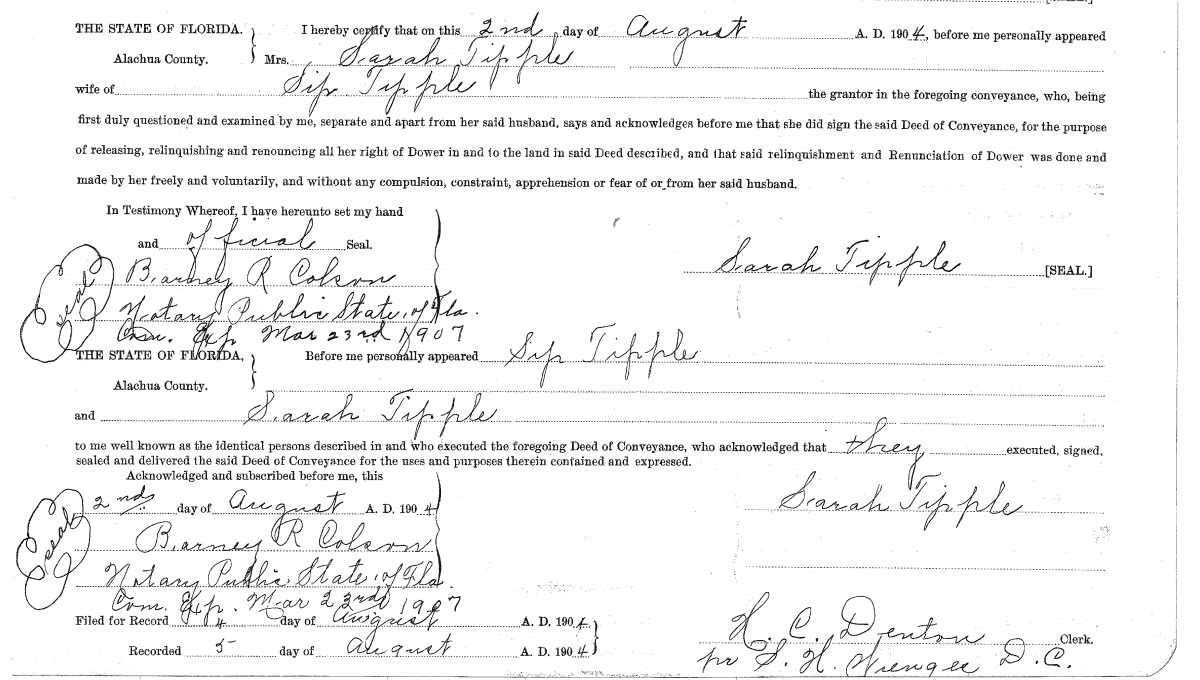 [SEAL.]
THE STATE OF FLORIDA. } I hereby certify that on this 2nd day of August A. D. 1904, before me personally appeared
Alachua County. Mrs. Sarah Tipple
wife of Sip Tipple the grantor in the foregoing conveyance, who, being
first duly questioned and examined by me, separate and apart from her said husband, says and acknowledges before me that she did sign the said Deed of Conveyance, for the purpose
of releasing, relinquishing and renouncing all her right of Dower in and to the land in said Deed described, and that said relinquishment and Renunciation of Dower was done and
made by her freely and voluntarily, and without any compulsion, constraint, apprehension or fear of or from her said husband.
In Testimony Whereof, I have hereunto set my hand
and official Seal.
Sarah Tipple [SEAL.]
Seal Barney R Colson
Notary Public State of Fla.
Com. Exp Mar 23rd 1907
THE STATE OF FLORIDA, } Before me personally appeared Sip Tipple
Alachua County.
and Sarah Tipple
to me well known as the identical persons described in and who executed the foregoing Deed of Conveyance, who acknowledged that they executed, signed,
sealed and delivered the said Deed of Conveyance for the uses and purposes therein contained and expressed.
Acknowledged and subscribed before me, this
Seal 2nd day of August A. D. 1904 Sarah Tipple
Barney R Colson
Notary Public State of Fla.
Com. Exp. Mar 23rd 1907
Filed for Record 4 day of August A. D. 1904
H. C. Denton Clerk.
Recorded 5 day of August A. D. 1904
pr S. H. D. C.